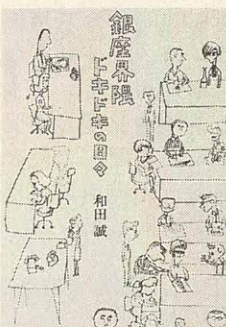 銀座界隈
ドキドキの日々
和田誠